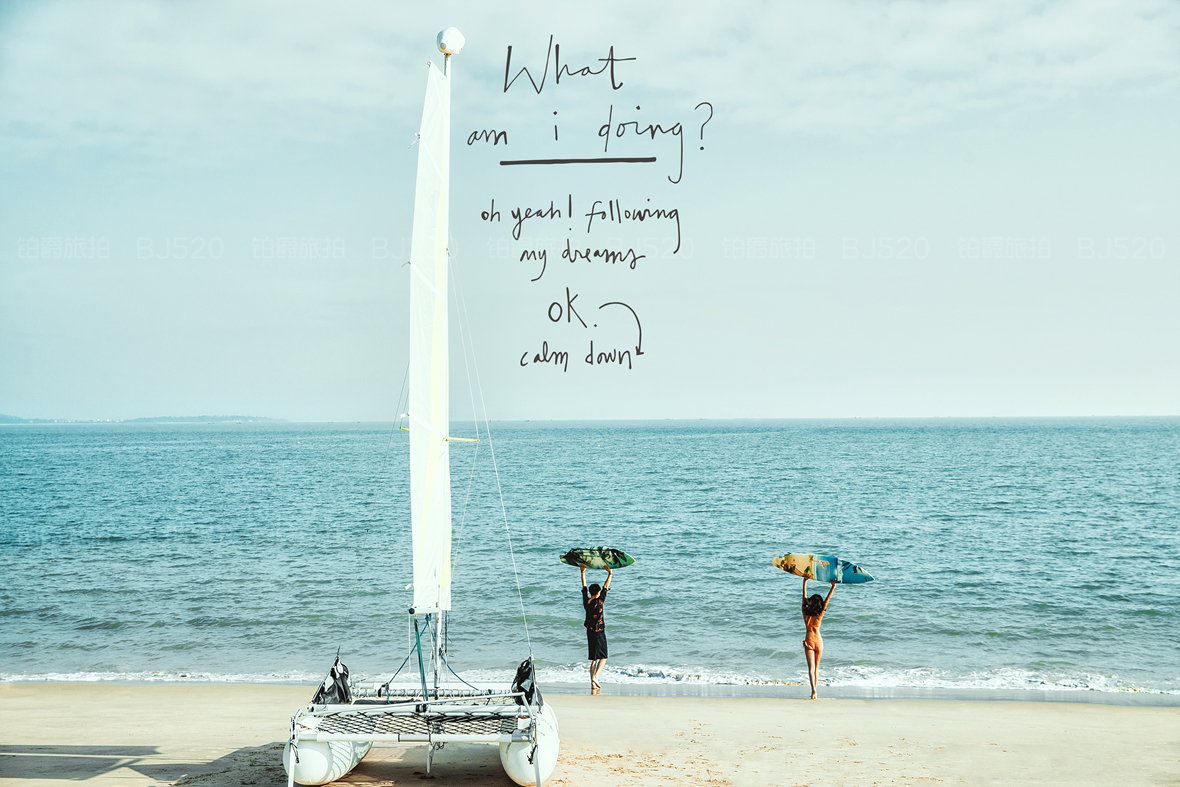 What
am i doing?
oh yeah! following
my dreams
OK.
calm down
铂爵旅拍 BJ520 铂爵旅拍 BJ520 铂爵旅拍 BJ520 铂爵旅拍 BJ520 铂爵旅拍 BJ520